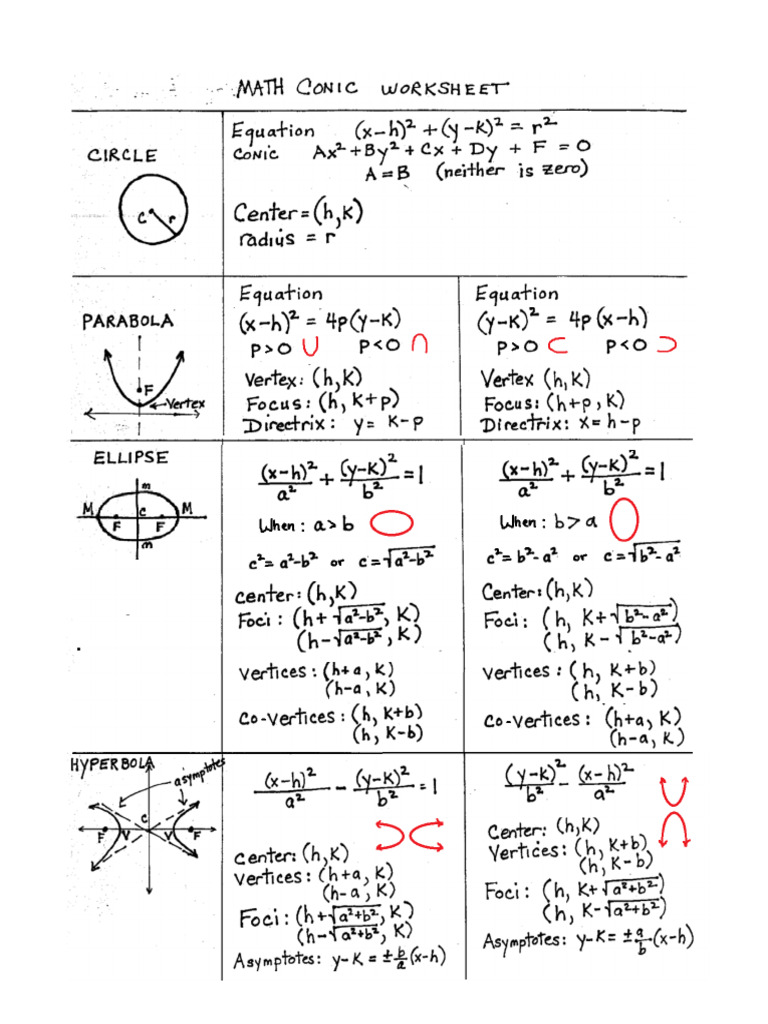 MATH CONIC WORKSHEET
CIRCLE
C r
Equation (x-h)² + (y-k)² = r²
CONIC Ax² + By² + Cx + Dy + F = 0
A = B (neither is zero)
Center = (h,k)
radius = r
PARABOLA
F
Vertex
Equation
(x-h)² = 4p(y-k)
P>0 P<0
Vertex: (h,k)
Focus: (h, k+p)
Directrix: y = k-p
Equation
(y-k)² = 4p(x-h)
P>0 P<0
Vertex (h,k)
Focus: (h+p, k)
Directrix: x = h-p
ELLIPSE
m
M C M
F F
m
(x-h)²/a² + (y-k)²/b² = 1
When: a>b
c² = a²-b² or c = √(a²-b²)
center: (h,k)
Foci: (h+√(a²-b²), k)
(h-√(a²-b²), k)
Vertices: (h+a, k)
(h-a, k)
Co-Vertices: (h, k+b)
(h, k-b)
(x-h)²/a² + (y-k)²/b² = 1
When: b>a
c² = b²-a² or c = √(b²-a²)
Center: (h,k)
Foci: (h, k+√(b²-a²))
(h, k-√(b²-a²))
Vertices: (h, k+b)
(h, k-b)
Co-Vertices: (h+a, k)
(h-a, k)
HYPERBOLA
asymptotes
C
F V V F
(x-h)²/a² - (y-k)²/b² = 1
center: (h,k)
vertices: (h+a, k)
(h-a, k)
Foci: (h+√(a²+b²), k)
(h-√(a²+b²), k)
Asymptotes: y-k = ±b/a (x-h)
(y-k)²/b² - (x-h)²/a²
Center: (h,k)
Vertices: (h, k+b)
(h, k-b)
Foci: (h, k+√(a²+b²))
(h, k-√(a²+b²))
Asymptotes: y-k = ±a/b (x-h)